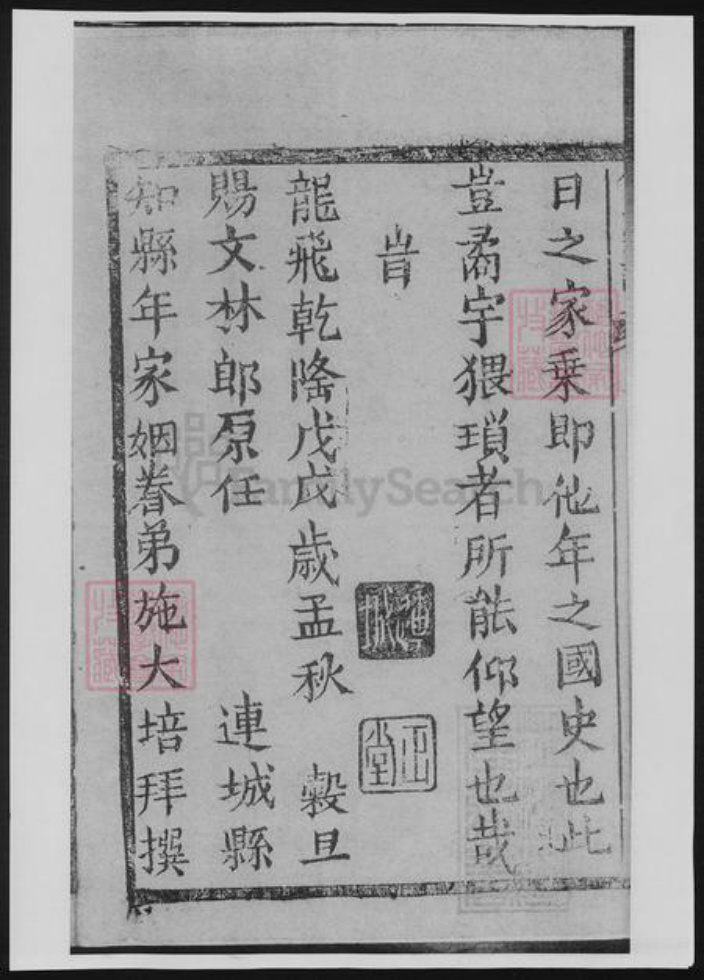 日之家乗即他年之國史也此
豈矞宇猥瑣者所能仰望也哉
旹
龍飛乾隆戊戌歲孟秋 穀旦
賜文林郎原任 連城縣
知縣年家姻眷弟施大培拜撰
正堂
FamilySearch